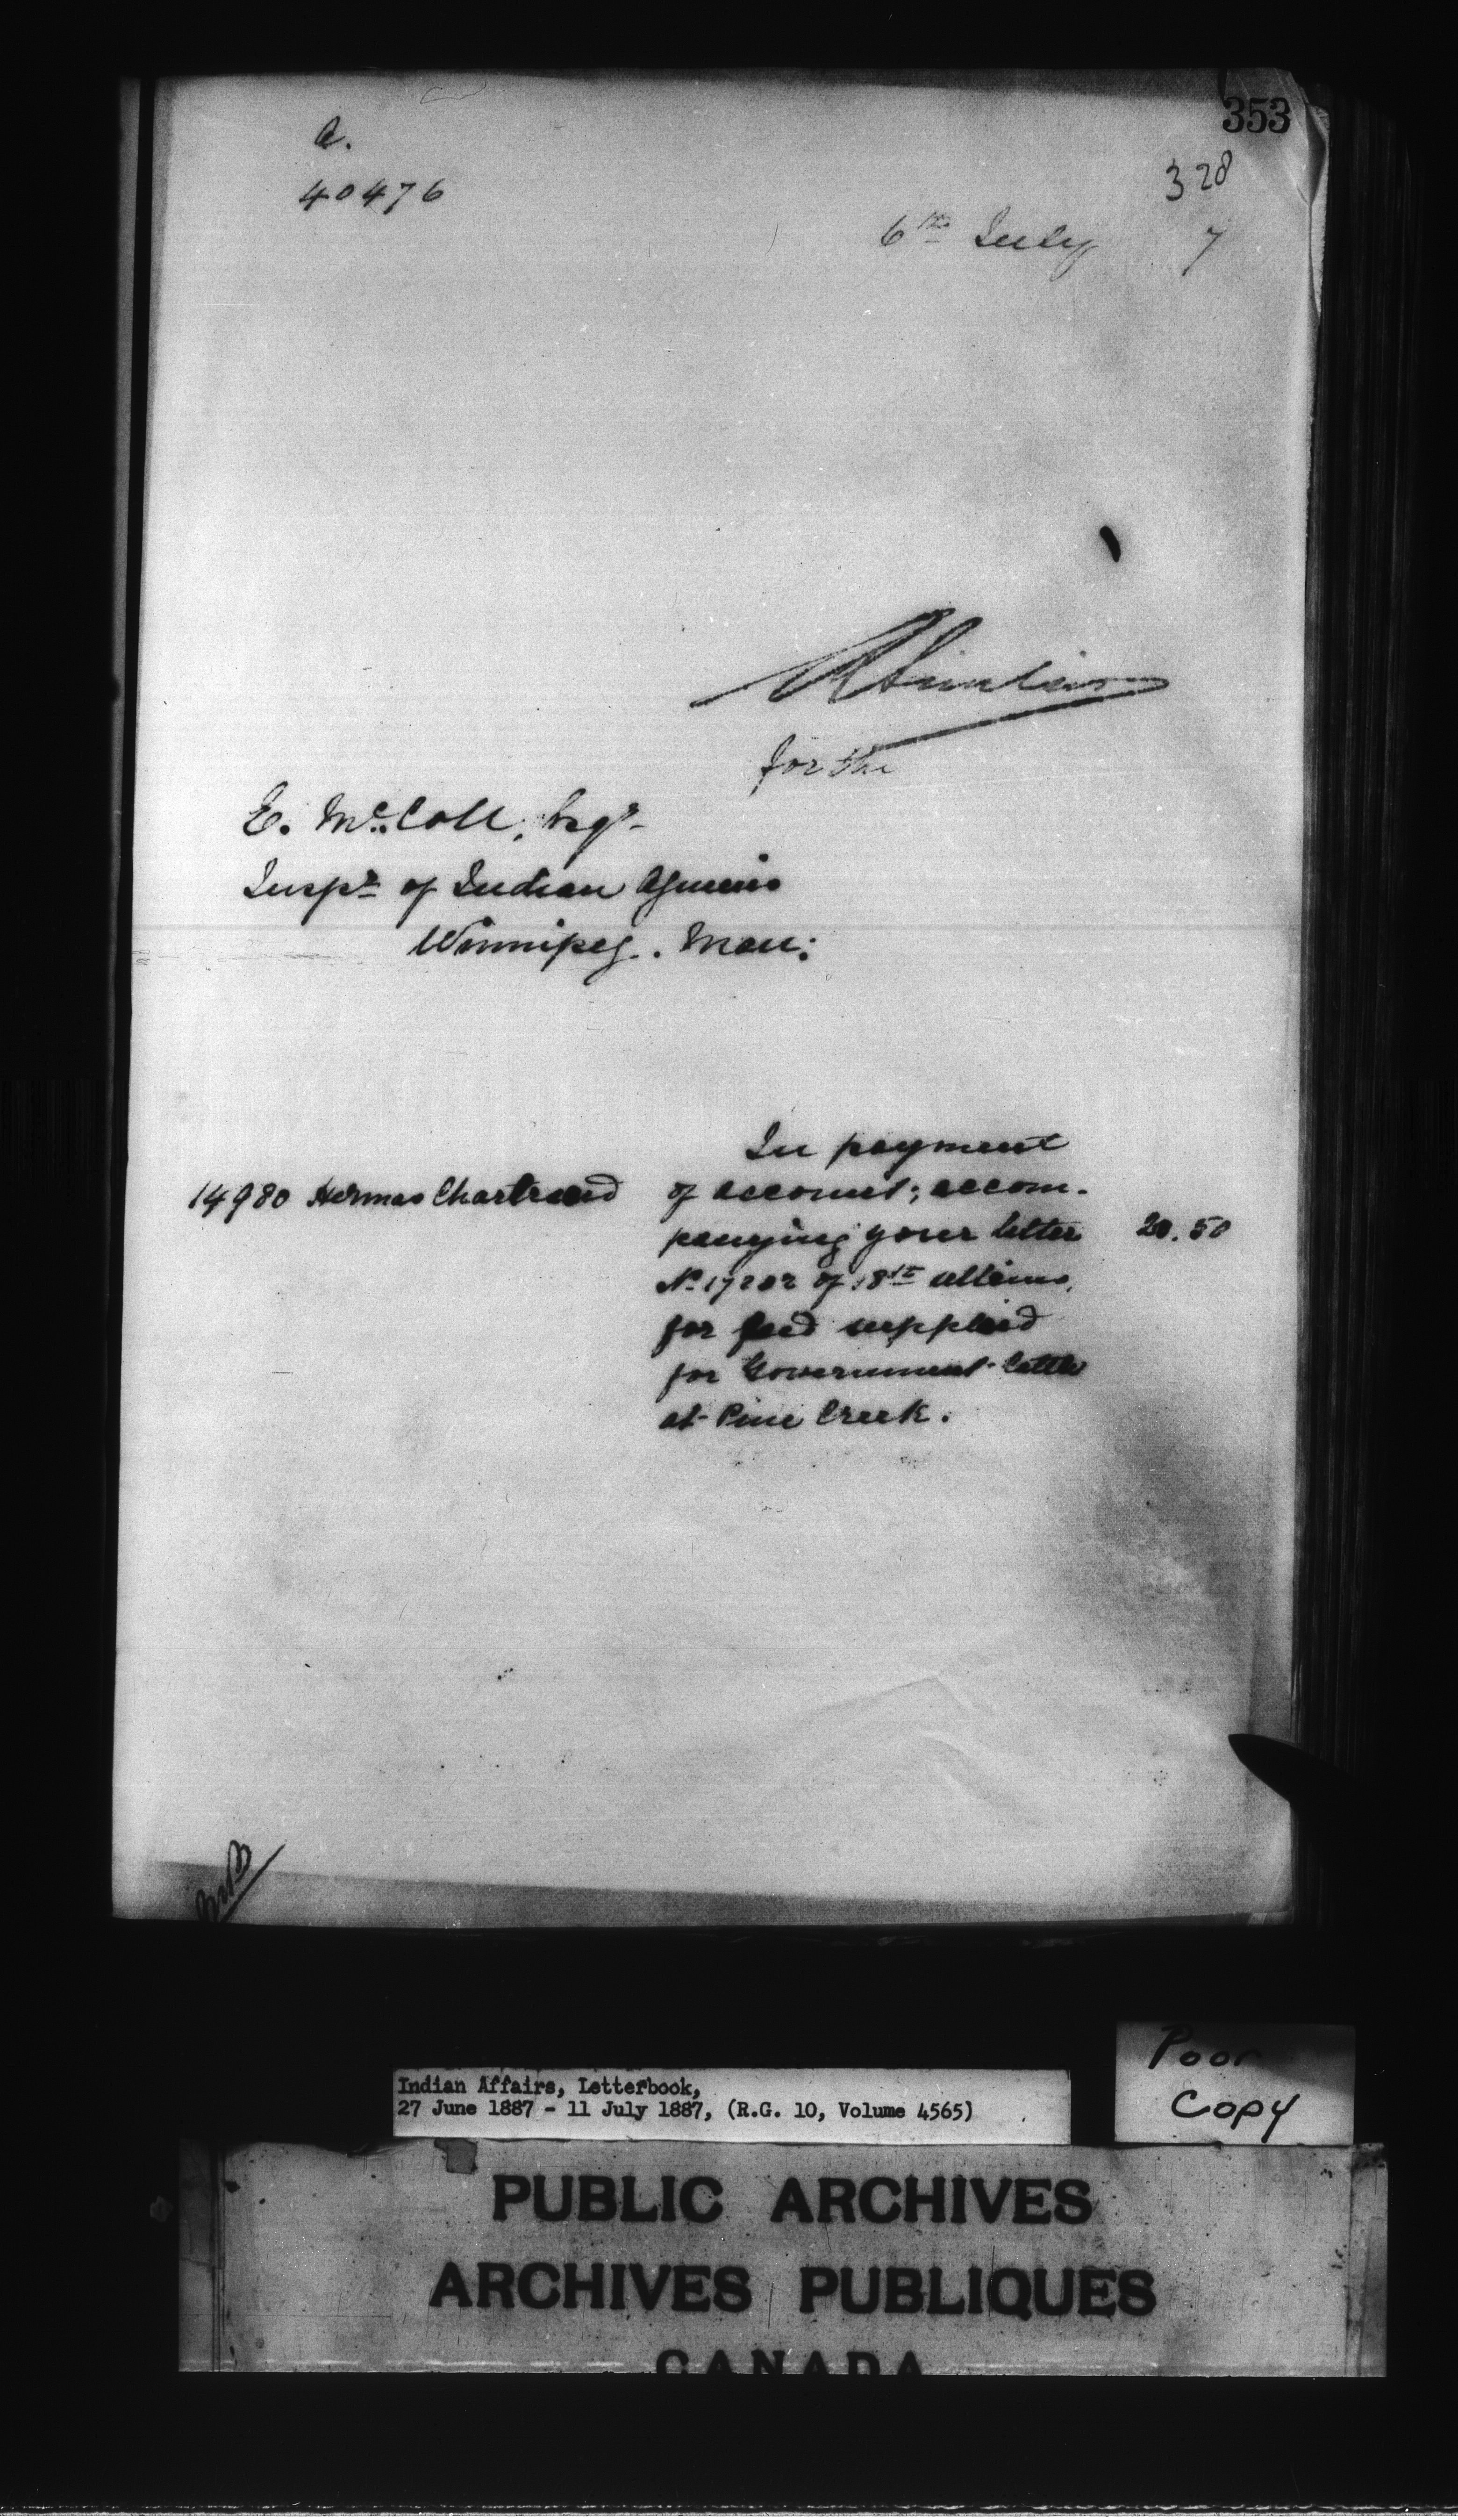 353
a.
328
40476
6th July 7
R Sinclair
for the
E. McColl, Esqr.
Inspr of Indian Agencies
Winnipeg. Man:
In payment
14980 Hermas Chartrand of account; accom-
panying your letter 20.50
No 17202 of 18th ultimo,
for feed supplied
for Government Cattle
at Pine Creek.
Poor
Copy
Indian Affairs, Letterbook,
27 June 1887 - 11 July 1887, (R.G. 10, Volume 4565)
PUBLIC ARCHIVES
ARCHIVES PUBLIQUES
CANADA